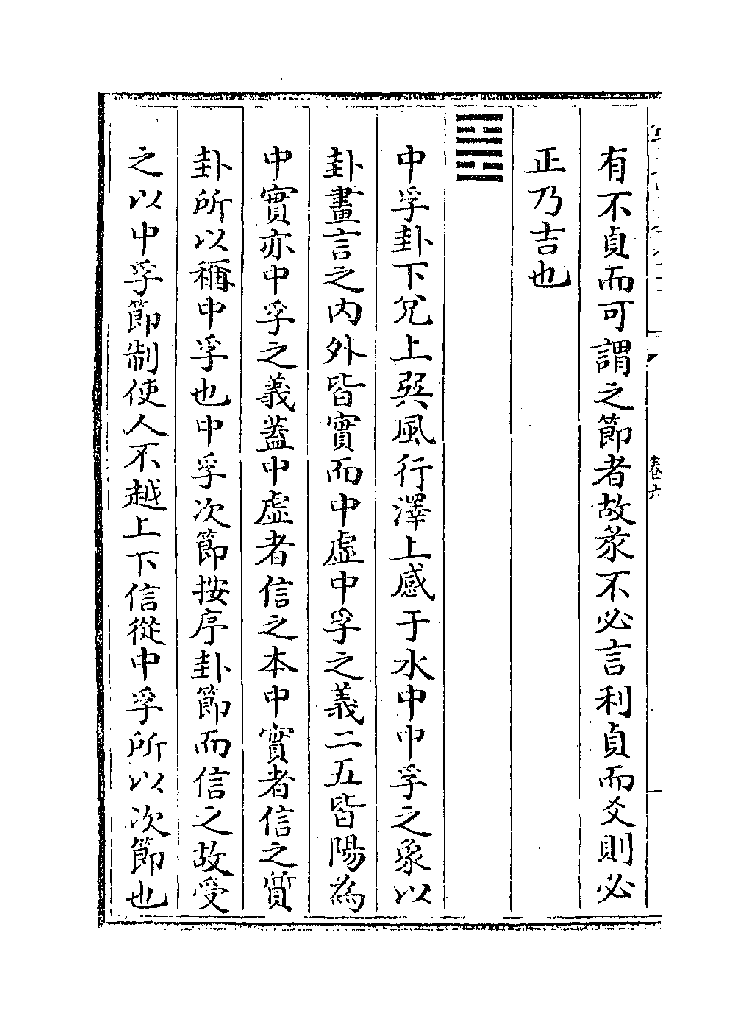 有不貞而可謂之節者故彖不必言利貞而爻則必
正乃吉也
䷼
中孚卦下兌上巽風行澤上感于水中中孚之象以
卦畫言之內外皆實而中虛中孚之義二五皆陽為
中實亦中孚之義蓋中虛者信之本中實者信之質
卦所以稱中孚也中孚次節按序卦節而信之故受
之以中孚節制使人不越上下信從中孚所以次節也
卷六